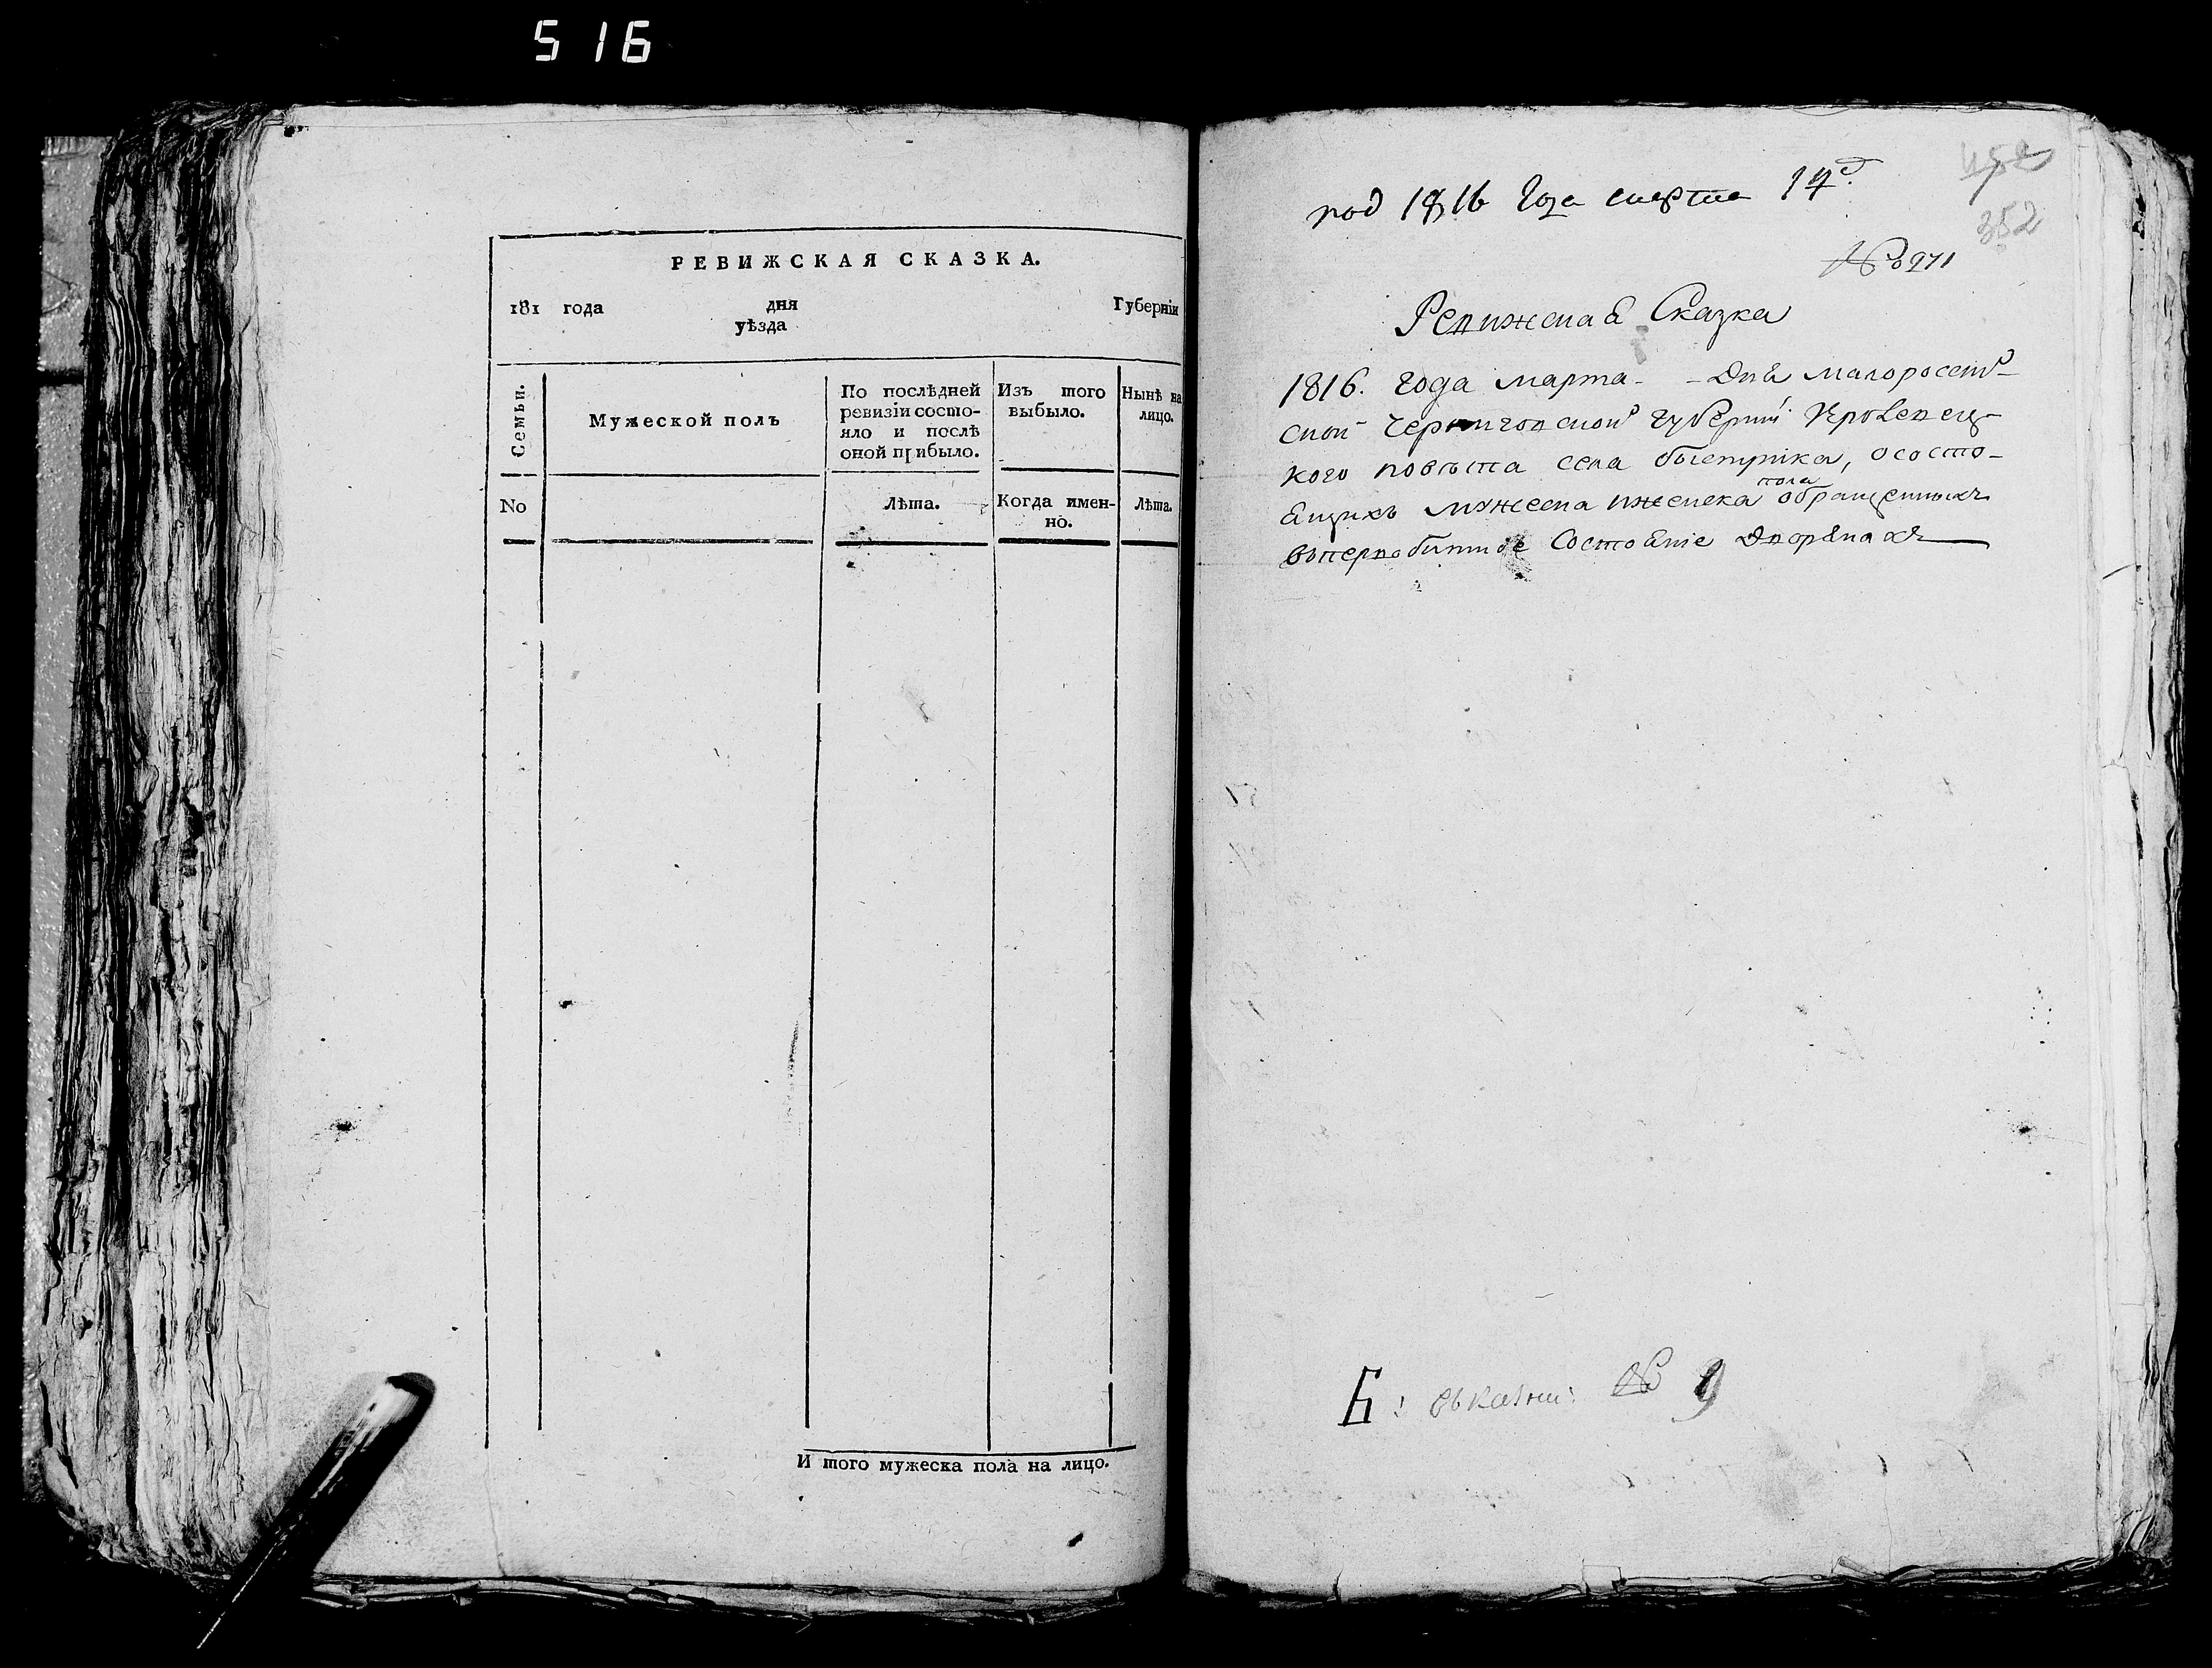 516
РЕВИЖСКАЯ СКАЗКА.
181 года дня Губерніи
уѣзда
Семьи.
Мужеской полъ
По послѣдней ревизіи состо-
яло и послѣ оной прибыло.
Изъ того выбыло.
Нынѣ на лицо.
No
Лѣта.
Когда имен-
но.
Лѣта.
И того мужеска пола на лицо.
под 1816 года 14
352
№ 271
Ревижская Сказка
1816. года марта - - Дня малоросси-
ской Черниговской губерніи Кролевец-
кого повѣта села быстрика, ососто-
ящихъ мужеска иженска пола обращенныхъ
въпервобитное Состояніе Дворянахъ
Б: № 9